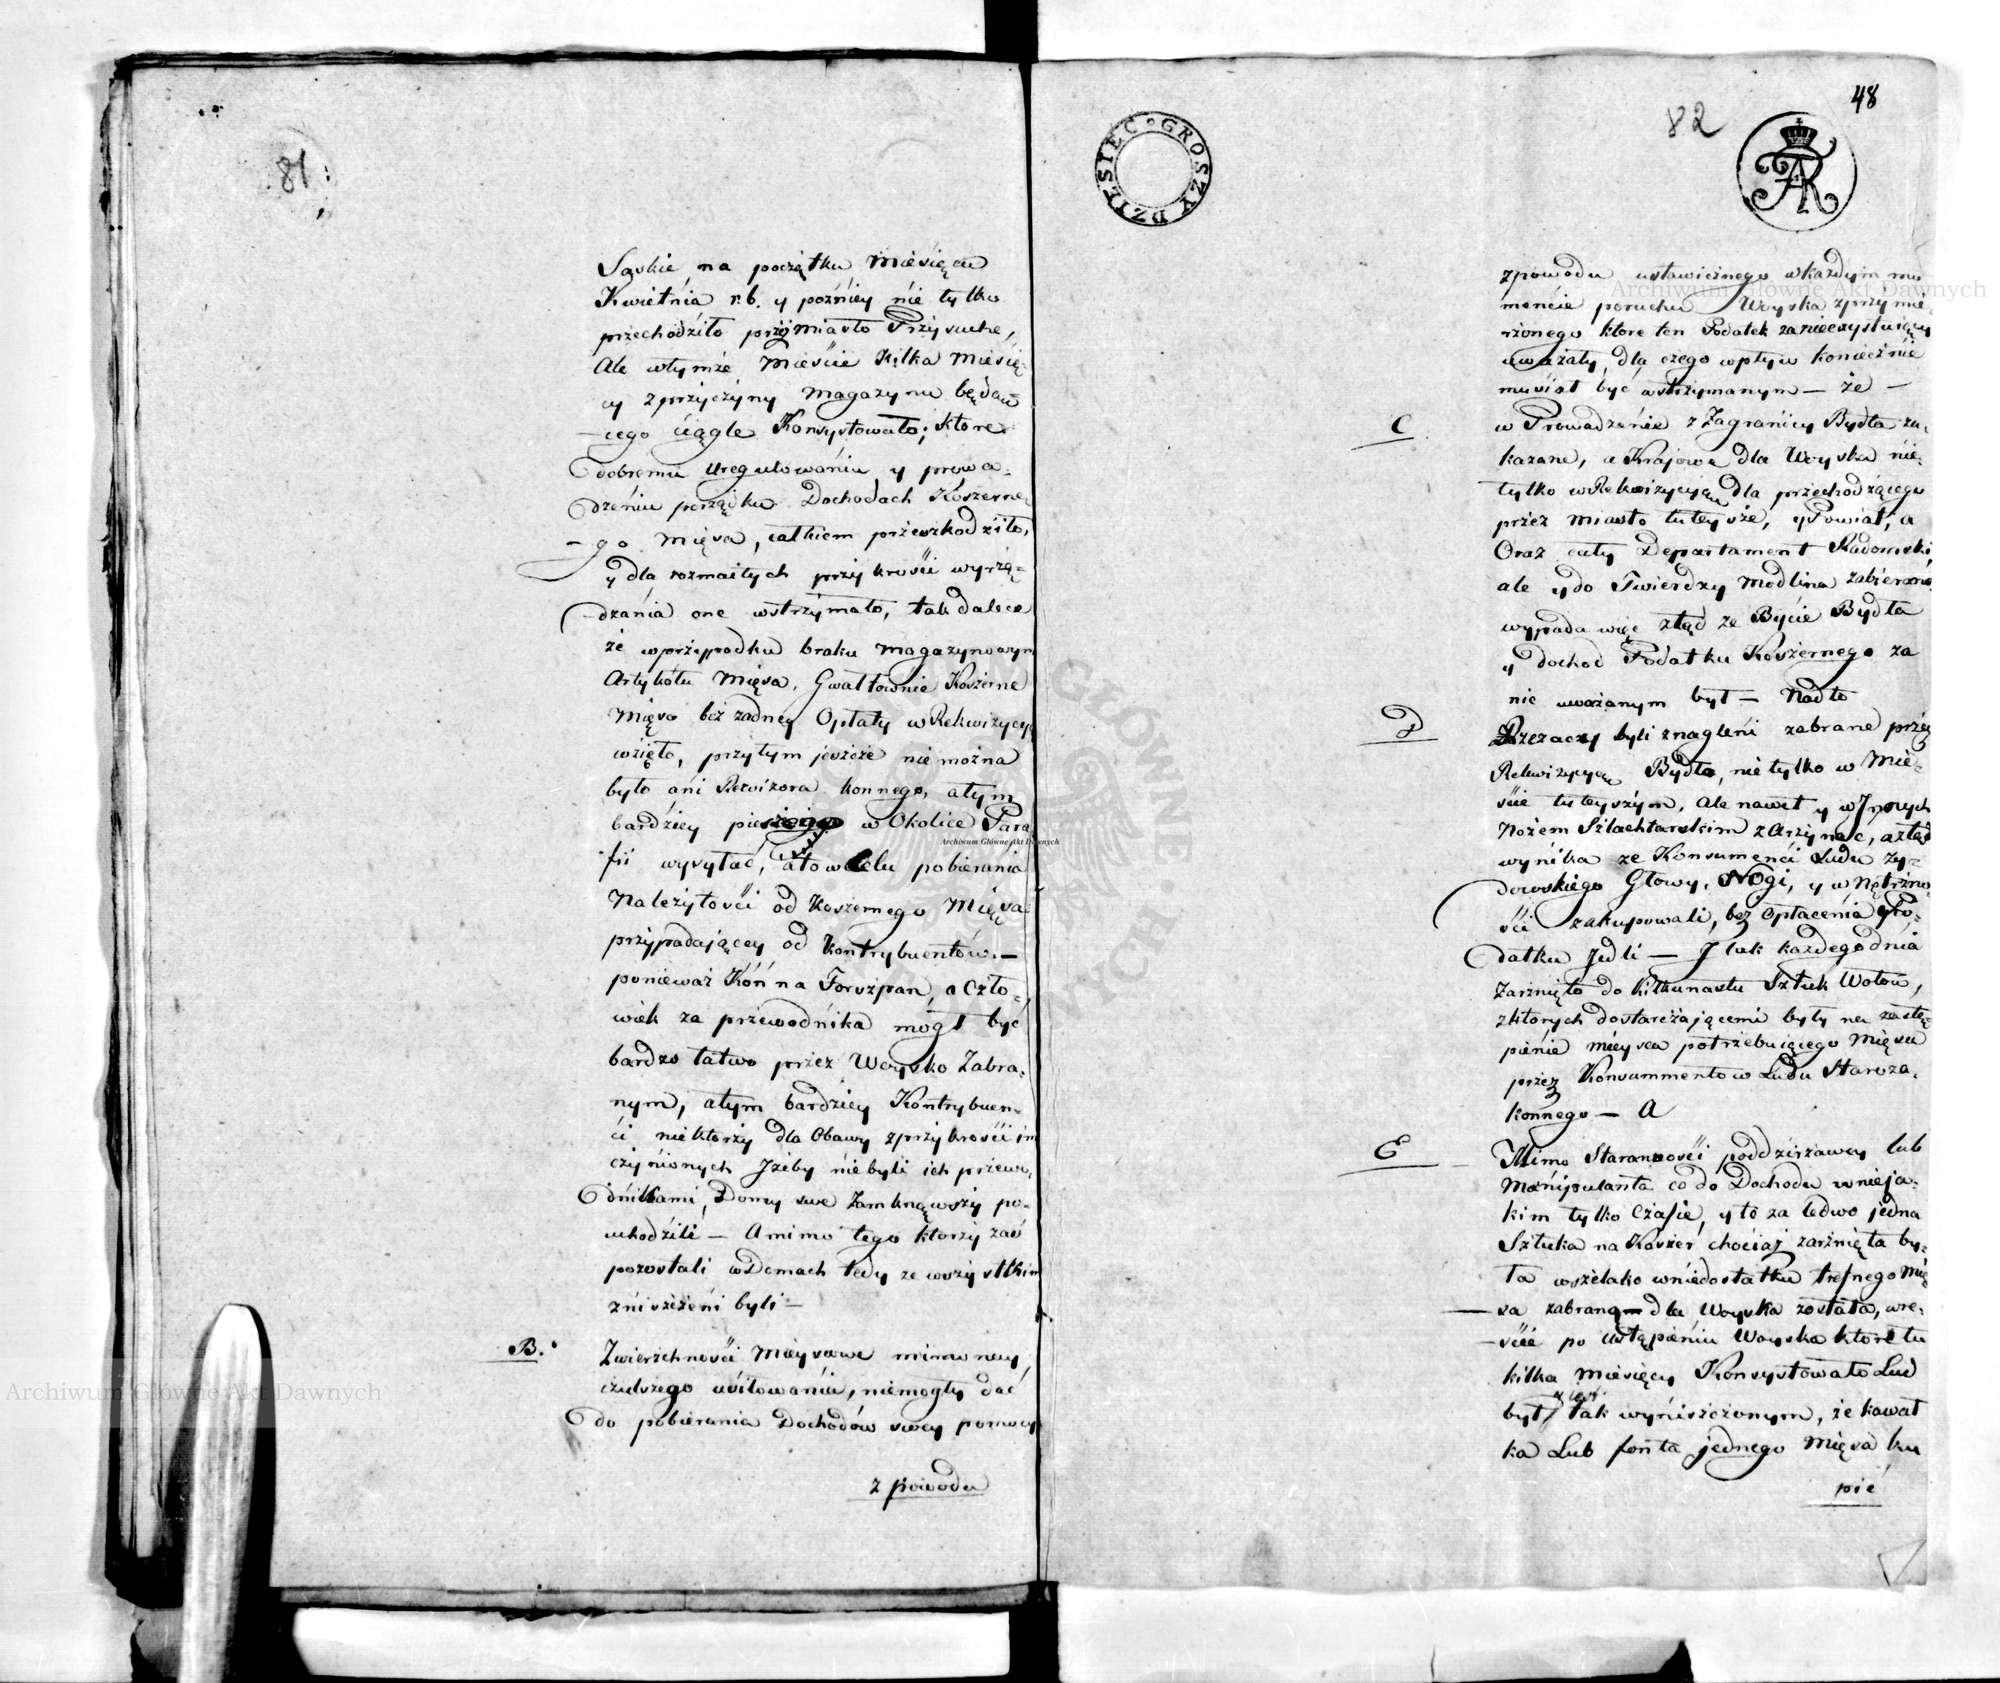 81
Sąskie na początku Miesięca
Kwietnia r.b. y poźniey nie tylko
przechodziło przez Miasto Przysuchę,
Ale wtymże Mieście kilka Miesię-
cy zprzyczyny Magazynu będą-
cego ciągle Konsystowało; które
dobremu uregulowaniu y prowa-
dzeniu porządku Dochodach Koszerne-
go Mięsa, całkiem przeszkodziło,
y dla rozmaitych przykrości wyrzą-
dzania one wstrzymało, tak dalece
że wprzypadku braku Magazynowym
Artykołu Mięsa, Gwałtownie Koszerne
Mięso bez żadney Opłaty w Rekwizycyą
wzięto, przytym jeszcze nie można
było ani Rewizora konnego, atym
bardziey pieszego w Okolice Para-
fii wysyłać, a to w Celu pobierania
Należytości od Koszernego Mięsa
przypadającey od Kontrybuentów. —
ponieważ Koń na Forszpan, a Czło-
wiek za przewodnika mogł być
bardzo łatwo przez Woysko Zabra-
nym, atym bardziey Kontrybuen-
ci niektorzy dla Obawy zprzykrości im
czynionych Jżeby niebyli ich przewo-
dnikami, Domy swe Zamknąwszy po-
uchodzili — A mimo tego ktorzy zaś
pozostali w Domach tedy ze wszystkim
zniszczeni byli —
B. Zwierzchności Mieyscowe mimo ney
czulszego usiłowania, niemogły dać
do pobierania Dochodów swey pomocy
z powodu
48
82
DZIESIEC GROSZY
FAR
zpowodu ustawicznego w każdym mo-
mencie poruchu Woyska zprzymie-
rzonego ktore ten Podatek za nieczystuiący
uważały, dla czego wpływ koniecznie
musiał być wstrzymanym — że —
C w Prowadzenie z Zagranicy Bydła za-
kazane, a Krajowe dla Woyska nie-
tylko w Rekwizycyą dla przechodzącego
przez miasto tuteysze, y Powiat, a
Oraz cały Departament Radomski
ale y do Twierdzy Modlina zabierano
wypada więc ztąd że Bycie Bydła
y dochod Podatku Koszernego za
nic uważanym był — Nadto
D Rzezacy byli znagleni zabrane przez
Rekwizycyą Bydło, nie tylko w Mie-
ście tuteyszym, Ale nawet y w Jnnych
Nożem Szlachtarskim zArzynać, a ztąd
wynika że Konsumenci Ludu Ży-
dowskiego Głowy, Nogi, y w Nętrzno-
ści zakupowali, bez Opłacenia Po-
datku Jedli — J tak każdego dnia
Zarznięto do kilkunastu Sztuk Wołow,
zktorych dostarczającemi były na zastę-
pienie mieysca potrzebuiącego Mięsa
przez Konsummentow Ludu Staroza-
konnego — A
E Mimo Staranności poddzirżawcy lub
Manipulanta co do Dochodu w nieja-
kim tylko Czasie, y to za ledwo jedna
Sztuka na Koszer chociaż zarznięta by-
ła wszelako w niedostatku trefnego Mię-
sa zabraną dla Woyska została, wre-
ście po Ustąpieniu Woyska ktore tu
kilka Miesięcy Konsystowało Lud
był tak wyniszczonym, że kawał
ka Lub fonta jednego Mięsa ku
pić
Archiwum Główne Akt Dawnych
Archiwum Główne Akt Dawnych
Archiwum Główne Akt Dawnych